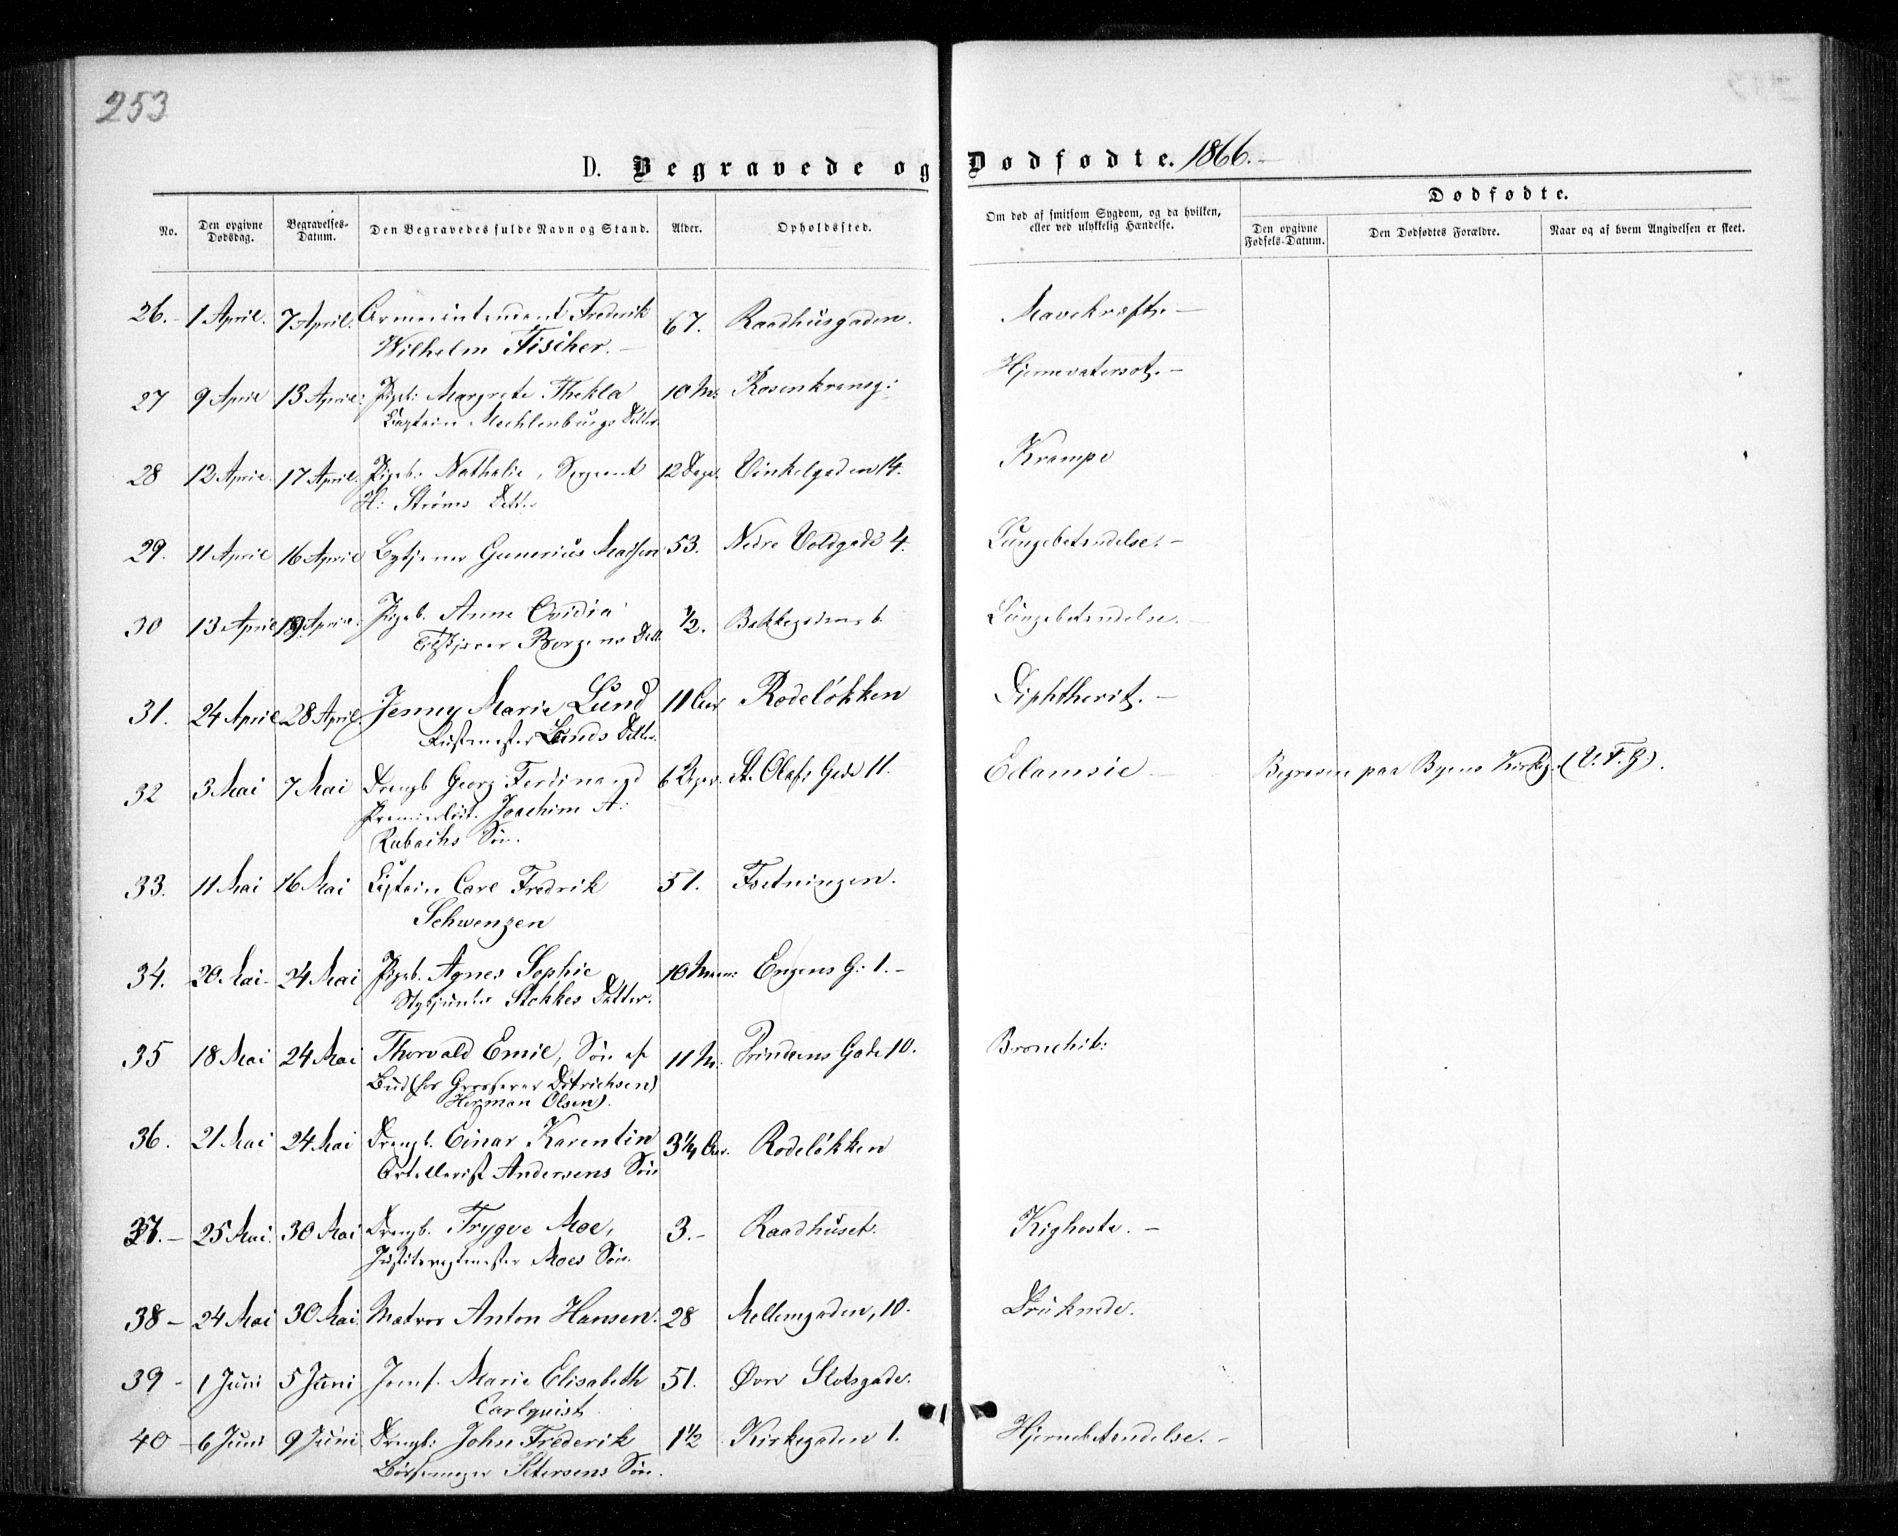 253
D. Begravede og Dødfødte. 1866.
No.
Den opgivne Dødsdag.
Begravelses-Datum.
Den Begravedes fulde Navn og Stand.
Alder.
Opholdssted.
Om død af smitsom Sygdom, og da hvilken,
eller ved ulykkelig Hændelse.
Dødfødte.
Den opgivne Fødsels-Datum.
Den Dødfødtes Forældre.
Naar og af hvem Angivelsen er skeet.
26. 1 April. 7 April. Armeeintendent Frederik 67. Raadhusgaden. Mavekræft.
Wilhelm Fischer.
27 9 April 13 April Pigeb: Margrete Thekla 10 M: Rosenkransg: Hjernevatersot.
Captain Mechlenburgs Datter
28 12 April 17 April. Pigeb. Nathalie, Sergeant 12 Dage. Vinkelgaden 14. Krampe
H: Strøms Datter
29. 11 April 16 April Gunerius 53. Nedre Voldgade 4. Lungebetændelse.
30 13 April 19 April Pigeb. Anne Ovidia 1/2. Bakkegaden 6. Lungebetændelse.
Borgens Datt.
31. 24 April 28 April. Jenny Marie Lund 11 Aar Rodeløkken Diphtherit.
Rustmester Lunds Datter.
32 3 Mai 7 Mai Drengb Georg Ferdinand 6 Dage. St. Olafs Gade 11. Eclamsie Begraven paa Byens Kirkeg. (V. F. G).
Premierløit. Joachim A:
Rubachs Søn.
33. 11 Mai 16 Mai Captain Carl Fredrik 51. Fæstningen.
Schwenzen
34. 20 Mai 24 Mai Pigeb. Agnes Sophie 10 Maan: Engens G: 1.
Stykjunker Stokkes Datter.
35 18 Mai 24 Mai Thorvald Emil, Søn af 11 M. Prindsens Gade 10. Bronchit:
Bud (hos Grosserer Ditrichsen)
Herman Olsen).
36. 21 Mai 24 Mai Drengb. Einar Karentin 3 1/4 Aar. Rodeløkken
Artellerist Andersens Søn
37. 25 Mai. 30 Mai Drengb. Trygve Moe, 3. Raadhuset. Kighoste.
Moes Søn.
38 24 Mai 30 Mai. Matros Anton Hansen. 28 Mellemgaden, 10. Druknede.
39 1 Juni 5 Juni Jomf. Marie Elisabeth 51. Øvre Slotsgade.
Carlquist
40 6 Juni 9 Juni Drengb: John Frederik 1 1/2 Kirkegaden 1. Hjernebetændelse.
Børsemager Petersens Søn.